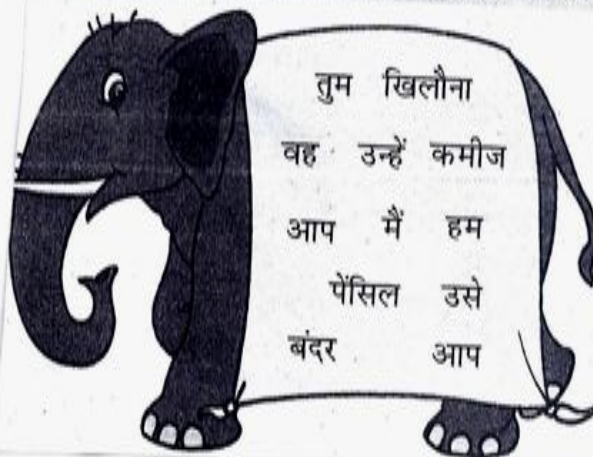 तुम खिलौना
वह उन्हें कमीज
आप मैं हम
पेंसिल उसे
बंदर आप